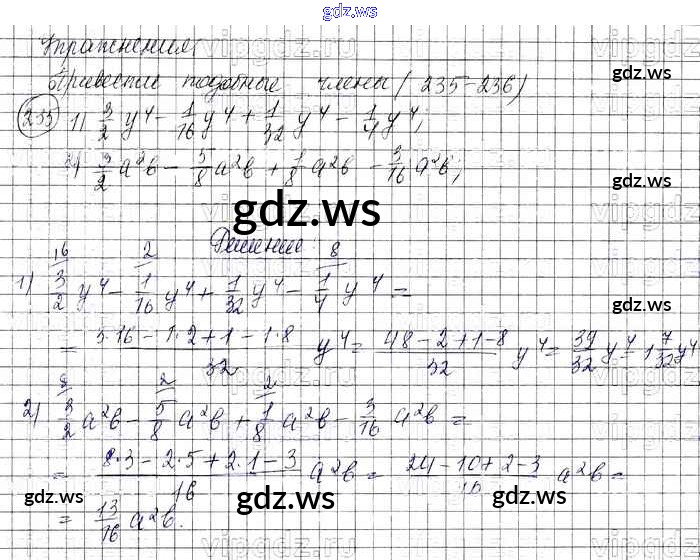 gdz.ws
Упражнения
Привести подобные члены (235-236)
gdz.ws
235 1) 3/2 y⁴ - 1/16 y⁴ + 1/32 y⁴ - 1/4 y⁴;
2) 3/2 a²b - 5/8 a²b + 1/8 a²b - 3/16 a²b;
gdz.ws
gdz.ws
Решение:
16 2 8
1) 3/2 y⁴ - 1/16 y⁴ + 1/32 y⁴ - 1/4 y⁴ =
gdz.ws
= 3·16 - 1·2 + 1 - 1·8 / 32 y⁴ = 48 - 2 + 1 - 8 / 32 y⁴ = 39/32 y⁴ = 1 7/32 y⁴
8 2 2
2) 3/2 a²b - 5/8 a²b + 1/8 a²b - 3/16 a²b =
= 8·3 - 2·5 + 2·1 - 3 / 16 a²b = 24 - 10 + 2 - 3 / 16 a²b =
gdz.ws gdz.ws gdz.ws
= 13/16 a²b.
gdz.ws
vipgdz.ws